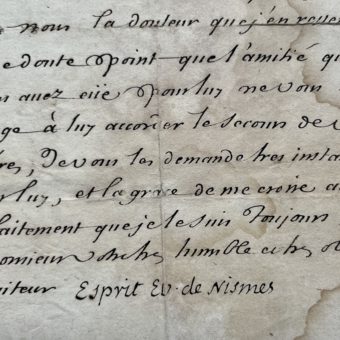 nous la douleur que j'en ressen
e doute point que l'amitié qu
avez eüe pour luy ne vous
ge à luy accorder le secours de v
res, Je vous les demande tres insta
luy, et la grace de me croire au
faitement que je le suis Toujours
onsieur votre tres humble et tres ob
iteur Esprit Ev. de Nismes